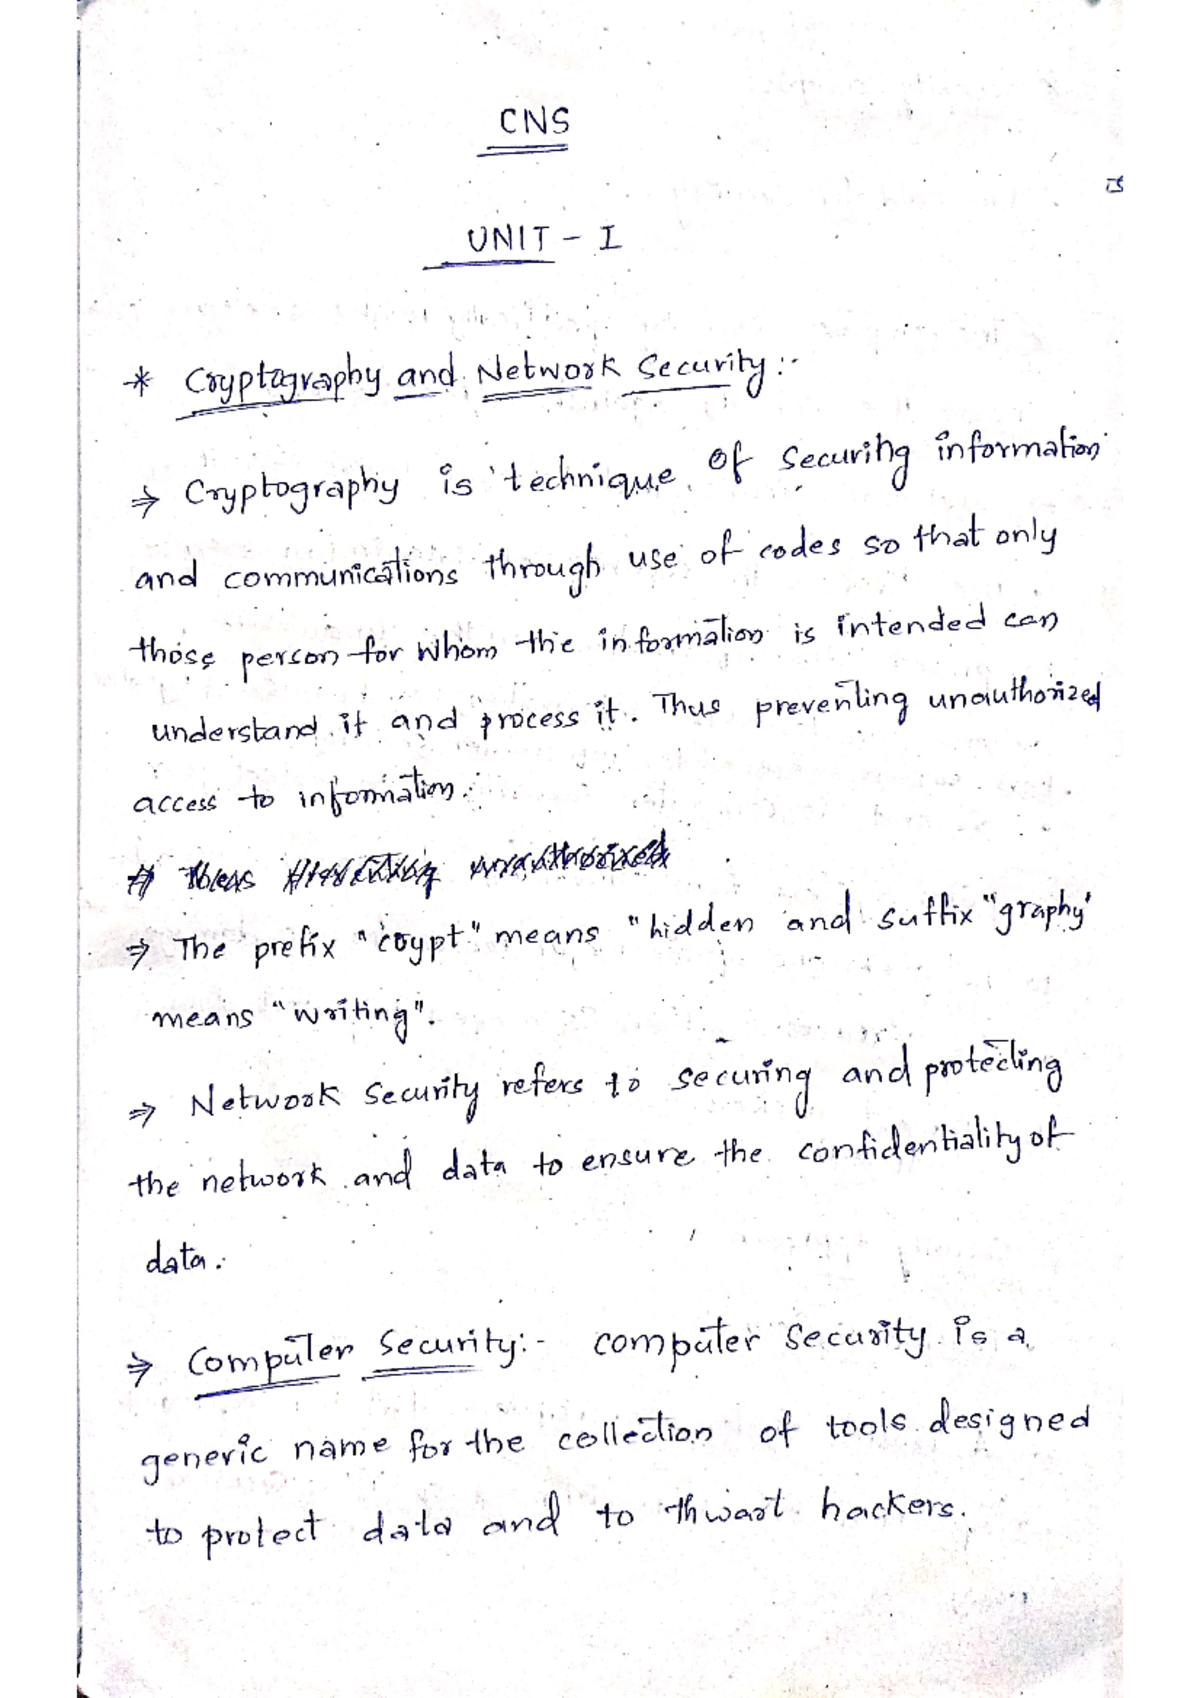 CNS
UNIT - I
* Cryptography and Network Security :-
⇒ Cryptography is technique of securing information
and communications through use of codes so that only
those person for whom the information is intended can
understand it and process it. Thus preventing unauthorized
access to information.
⇒ The prefix "crypt" means "hidden and suffix "graphy"
means "writing".
⇒ Network Security refers to securing and protecting
the network and data to ensure the confidentiality of
data.
⇒ Computer Security :- computer security is a
generic name for the collection of tools designed
to protect data and to thwart hackers.